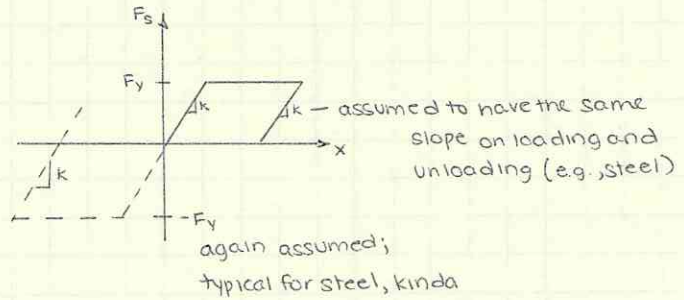 Fs
Fy
k
k – assumed to have the same
slope on loading and
unloading (e.g., steel)
x
k
-Fy
again assumed;
typical for steel, kinda